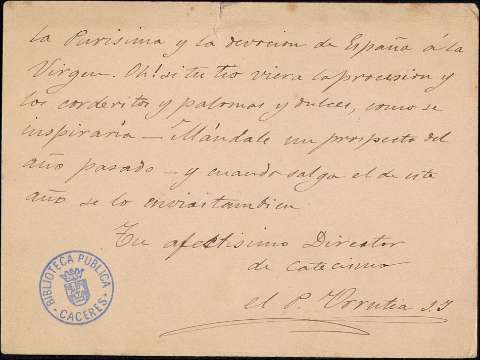 la Purisima y la devocion de España á la
Virgen. Oh! si tu tio viera la procesion y
los corderitos y palomas y dulces, como se
inspiraria — Mándale un prospecto del
año pasado — y cuando salga el de este
año se lo envias tambien
Tu afectisimo Director
de Catecismo
el P. Urrutia S.J
BIBLIOTECA PUBLICA
CACERES